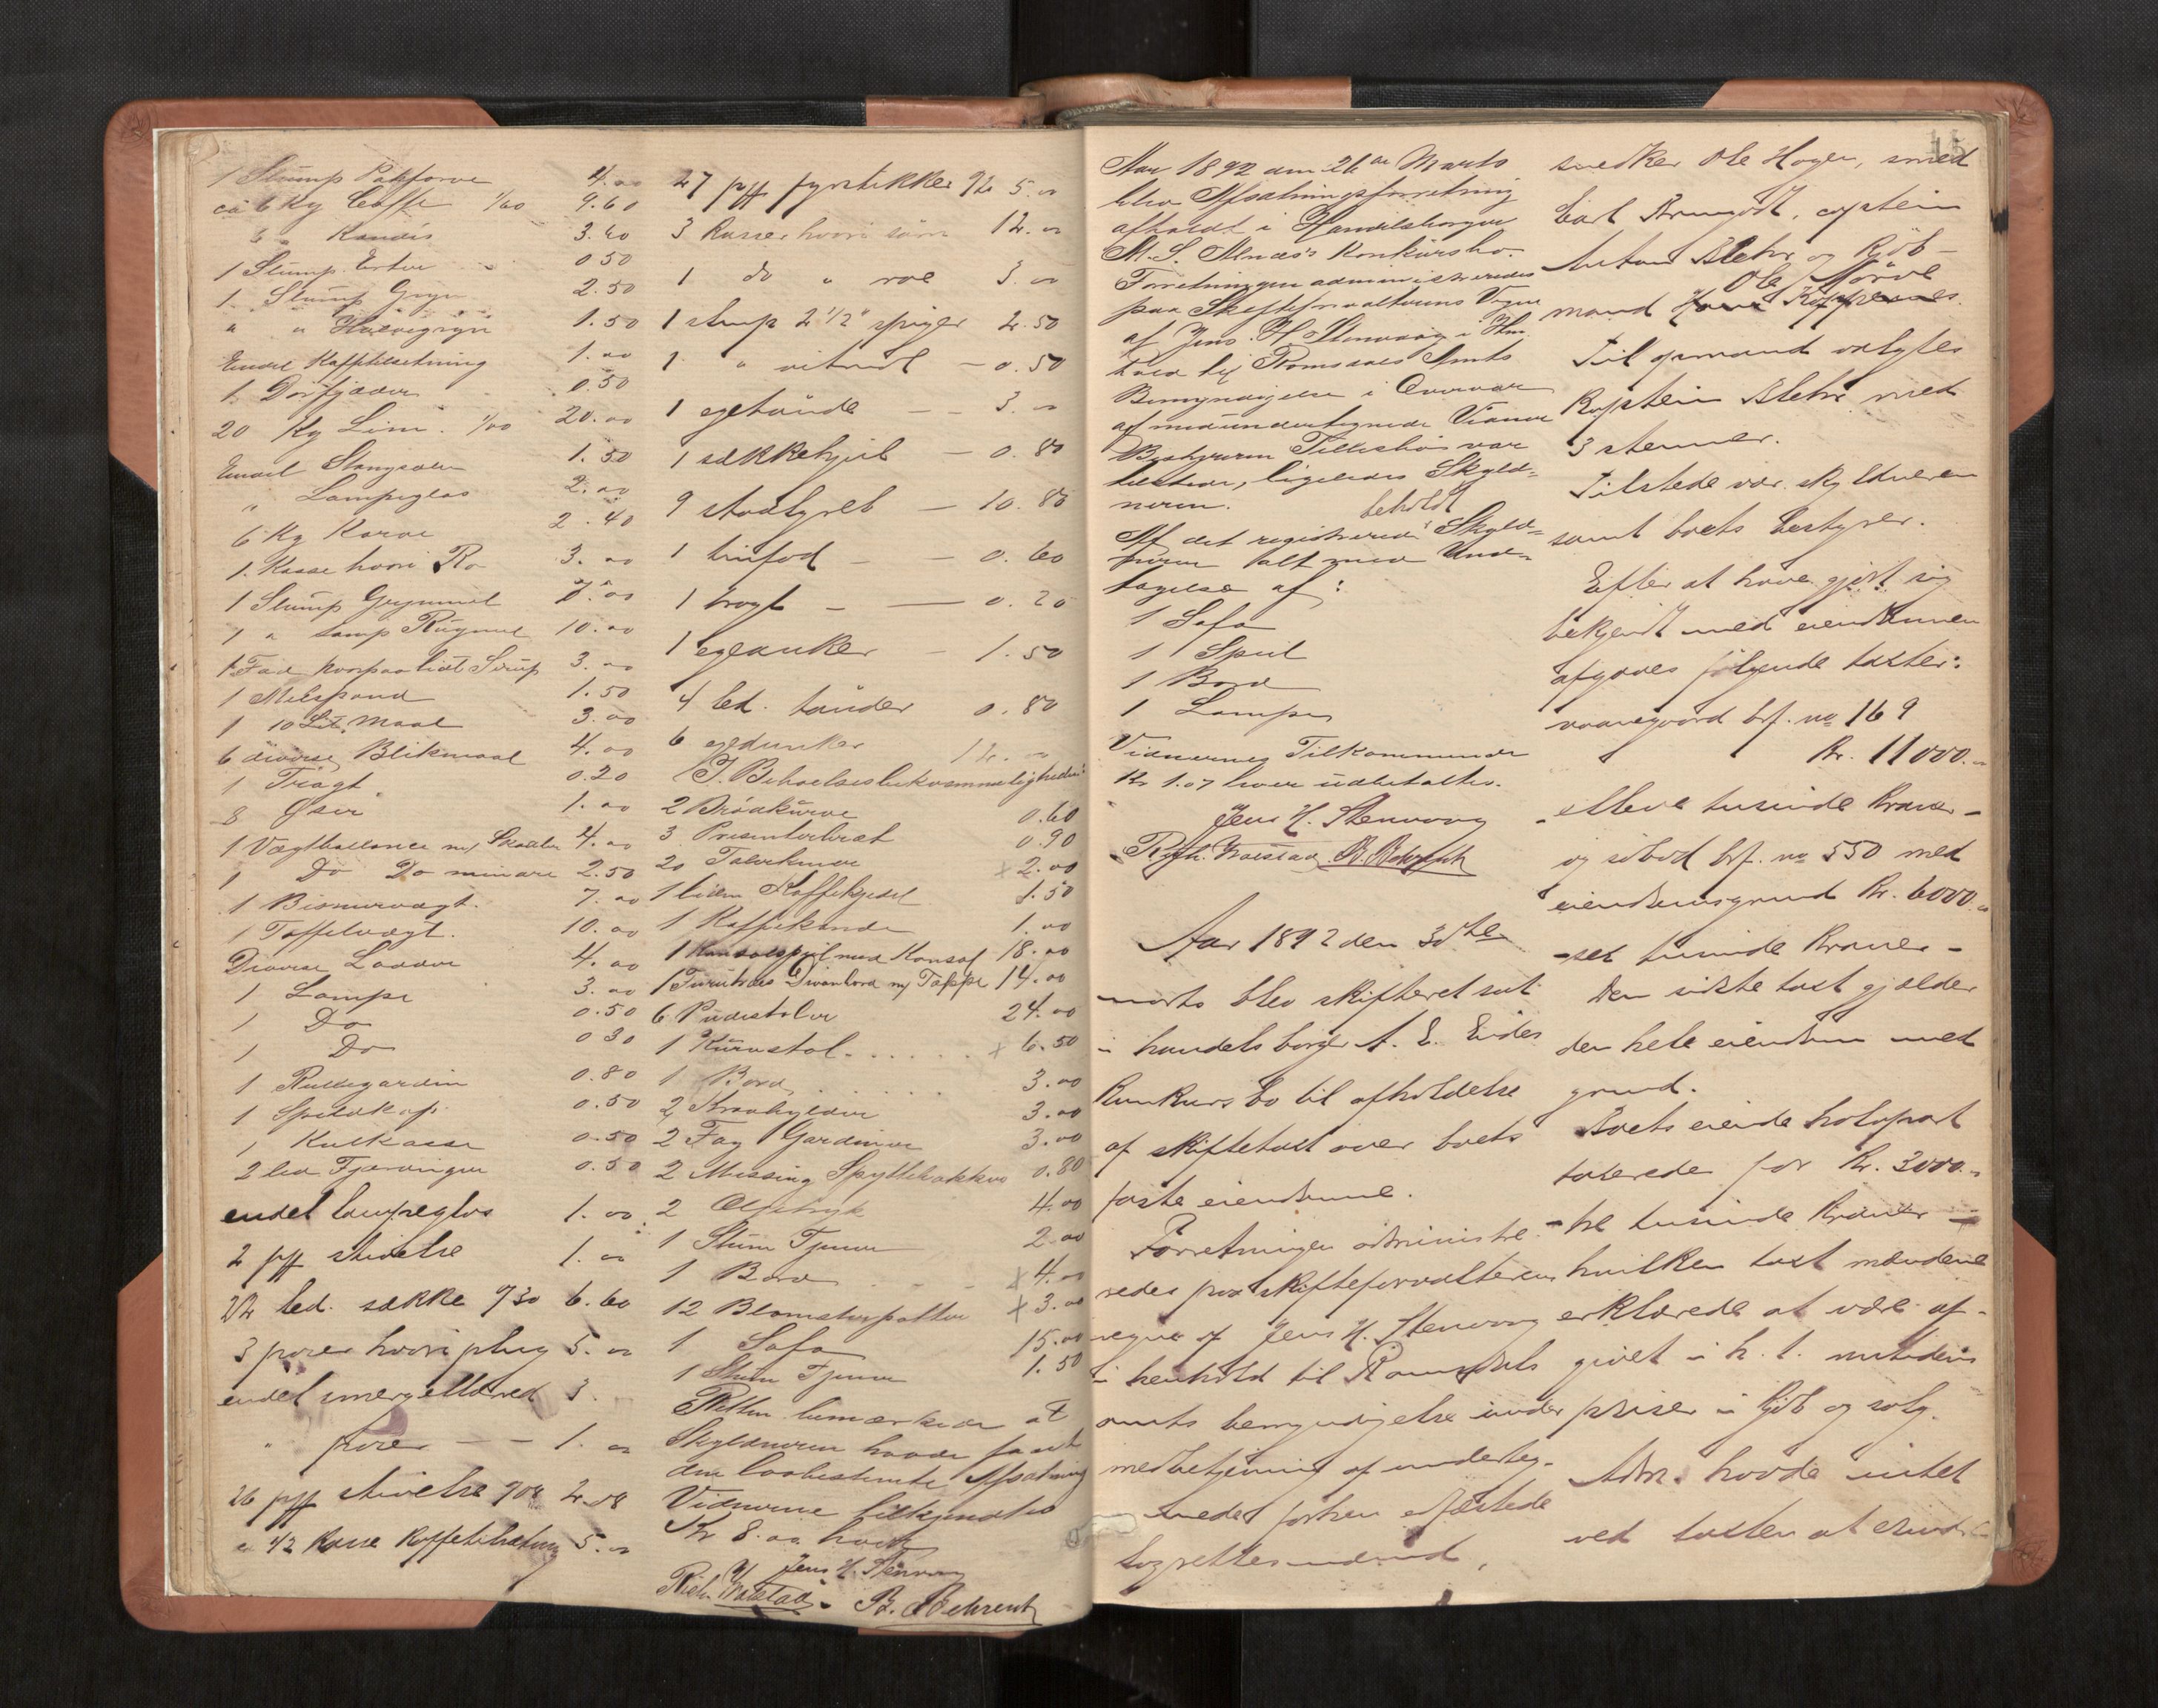 1 Stump Pakfarve 4.00
ca 6 Kg Caffe 1/60 9.60
6 " Kandis 3.60
1 Stump Erter 0 50
1 Stump Gryn 2.50
" " Hvedegryn 1.50
Endel Kaffetilsetning 1.00
1 Dørfjæder 0.50
20 Kg Lim 1/00 20.00
Endel Stangsæber 1.50
" Lampeglas 2.00
6 Kg Karve 2.40
1 Kasse hvori Ro 3.00
1 Stump Grynmel 7.00
1 " samp Rugmel 10.00
1 Fad hvorpaa lidt Sirup 3.00
1 Melspand 1.50
1 10 Lit. Maal 3.00
6 diverse Blikmaal 4.00
1 Tragt 0.20
8 Øser 1.00
1 Vægtballance m/ Skaaler 4.00
1 Do Do mindre 2.50
1 Bismervægt. 7.00
1 Taffelvægt. 10.00
Diverse Lodder 4.00
1 Lampe 3.00
1 Do 0.50
1 Do 0 30
1 Rullegardin 0.80
1 Speilskap 0.50
1 Kulkasse 0.50
2 led Fjerdinger 0.50
endel lampeglas 1.00
2 pff stivelse 1.00
22 led. sække 9/30 6.60
3 poser hvori plug 5.00
endel smergellærred 3.
" poser — — 1.00
26 pff stivelse 9/08 2.08
a 42 Kasse Kaffetilsetning 5.00
27 pff fyrstikker 9/20 5.00
3 Kasser hvori søm 12.00
1 do " roe 3.00
1 stump 2 1/2" spiger 2.50
1 " vitriol — 0.50
1 egetønde — — 3.00
1 sækkehjul — 0. 80
9 — 10. 80
1 tinfad — — 0. 60
1 tragt — — 0. 20
1 egeanker — 1. 50
4 led. tønder 0. 80
6 egedunker 12.00
I. Behoelsesbekvemmeligheder:
2 Brødkurve 0.60
3 Presenterbret 0.90
20 Talerkener x 2.00
1 liden Kaffekjedel 1.50
1 Kaffekande 1.00
1 Konsolspeil med Konsol 18.00
1 Furutræs Divanbord m/ Teppe 14.00
6 Pudestoler 24.00
1 Kurvstol . . . . . . x 6.50
1 Bord . . . . 3.00
2 Kravhylder 3.00
2 Fag Gardiner 3.00
2 Messing Spyttebakker 0.80
2 Oljetryk 4.00
1 Stum Tjener 2.00
1 Bord x 4.00
12 Blomsterpotter x 3.00
1 Sofa 15.00
1 Stum Tjener 1.50
Retten bemærkede at
Skyldneren havde faaet
den lovbestemte Afsætning
Vidnerne tilkjendtes
Kr 8.00 hver
Jens H. Stenvaag
Rich. Wolstad. B. Behrent
15
Aar 1892 den 26de Marts
blev Afsætningsforretning
afholdt i Handelsborger
M. S. Alnæs's Konkursbo.
Forretningen administreredes
paa Skifteforvalterens Vegne
af Jens H. Stenvaag i Hen-
hold til Romsdals Amts
Bemyndigelse i Overvær
af medundertegnede Vidner
Bestyreren Tilleshus var
tilstede, ligeledes Skyld-
neren.
Af det registrerede beholdt Skyld-
neren Alt med Und-
tagelse af:
1 Sofa
1 Speil
1 Bord
1 Lampe
Vidnernes Tilkommende
Kr 1.07 hver udbetaltes.
Jens H. Stenvaag
Rich. Wolstad B. Behrent
Aar 1892 den 30te
marts blev skifteret sat
i handelsborger A. E. Eides
Konkursbo til afholdelse
af skiftetaxt over boets
faste eiendomme.
Forretningen administre-
redes paa skifteforvalterens
vegne af Jens H. Stenvaag
i henhold til Romsdals
amts bemyndigelse under
medbetjening af underteg-
nede forhen edfæstede
lagrettesmænd,
snedker Ole Hagen, smed
Carl Brungodt, captein
Anton Blehr og Kjøb-
mand Ole Nørve
Til formand valgtes
Kaptein Blehr med
3 stemmer.
Tilstede var skyldneren
samt boets bestyrer.
Efter at have gjort sig
bekjendt med eiendommen
afgaves følgende taxter:
vaanegaard brf. no 169
Kr. 11000.00
- elleve tusinde Kroner -
og søbod brf. no 550 med
eiendomsgrund Kr. 6000.00
- sex tusinde Kroner -
Den sidste taxt gjælder
den hele eiendom med
grund.
Boets eiende halvpart
taxeredes for Kr. 3000.00
- tre tusinde Kroner -
hvilken taxt mændene
erklærede at være af-
givet i h. t. nutidens
priser i kjøb og salg.
Adm. havde intet
ved taxten at erindre